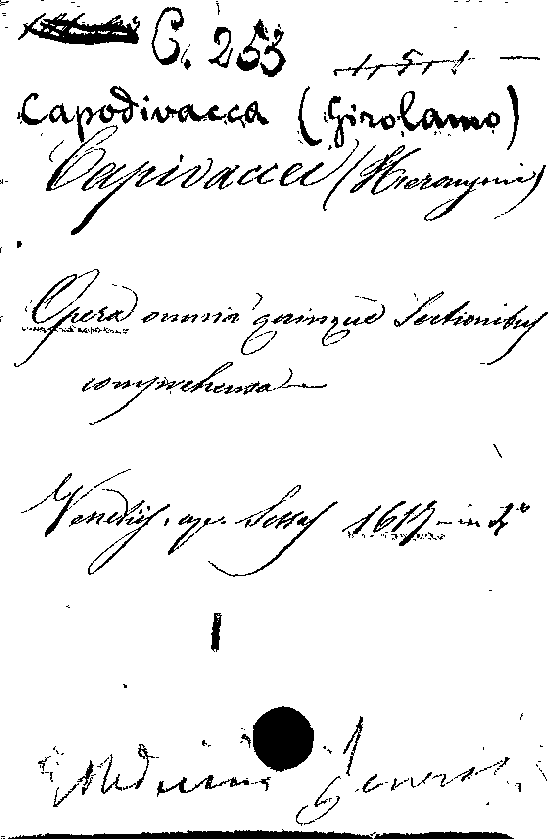 C. 253
Capodivacca (Girolamo)
Capivaccei (Hieronymi)
Opera omnia quinque Sectionibus
comprehensa
Venetiis, apu. Sessas 1617 in 4°
1
Medicina General